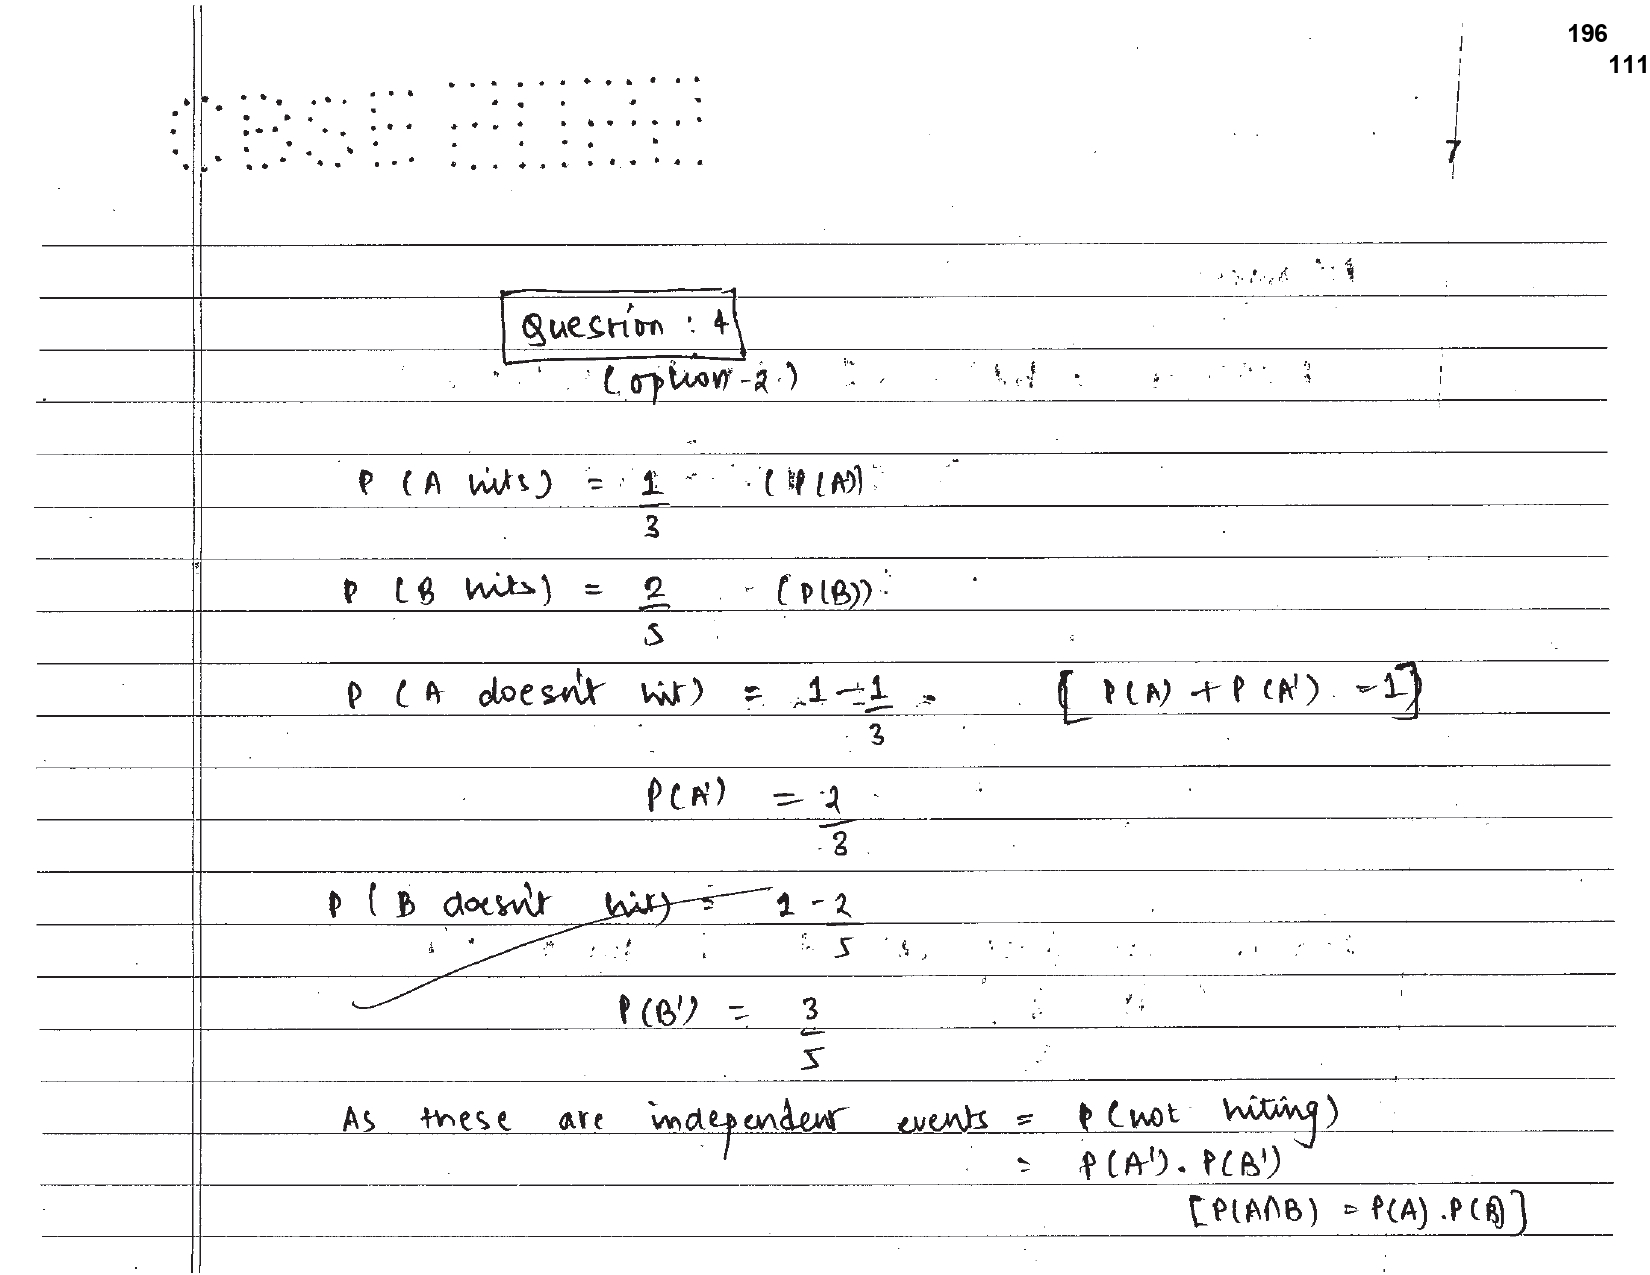 196
111
CBSE
7
Question : 4
(option-2)
P (A hits) = 1/3 (P(A))
P (B hits) = 2/5 (P(B))
P (A doesn't hit) = 1 - 1/3 = [P(A) + P(A') = 1]
P(A') = 2/3
P (B doesn't hit) = 1 - 2/5
P(B') = 3/5
As these are independent events = P (not hiting)
= P(A'). P(B')
[P(A∩B) = P(A).P(B)]